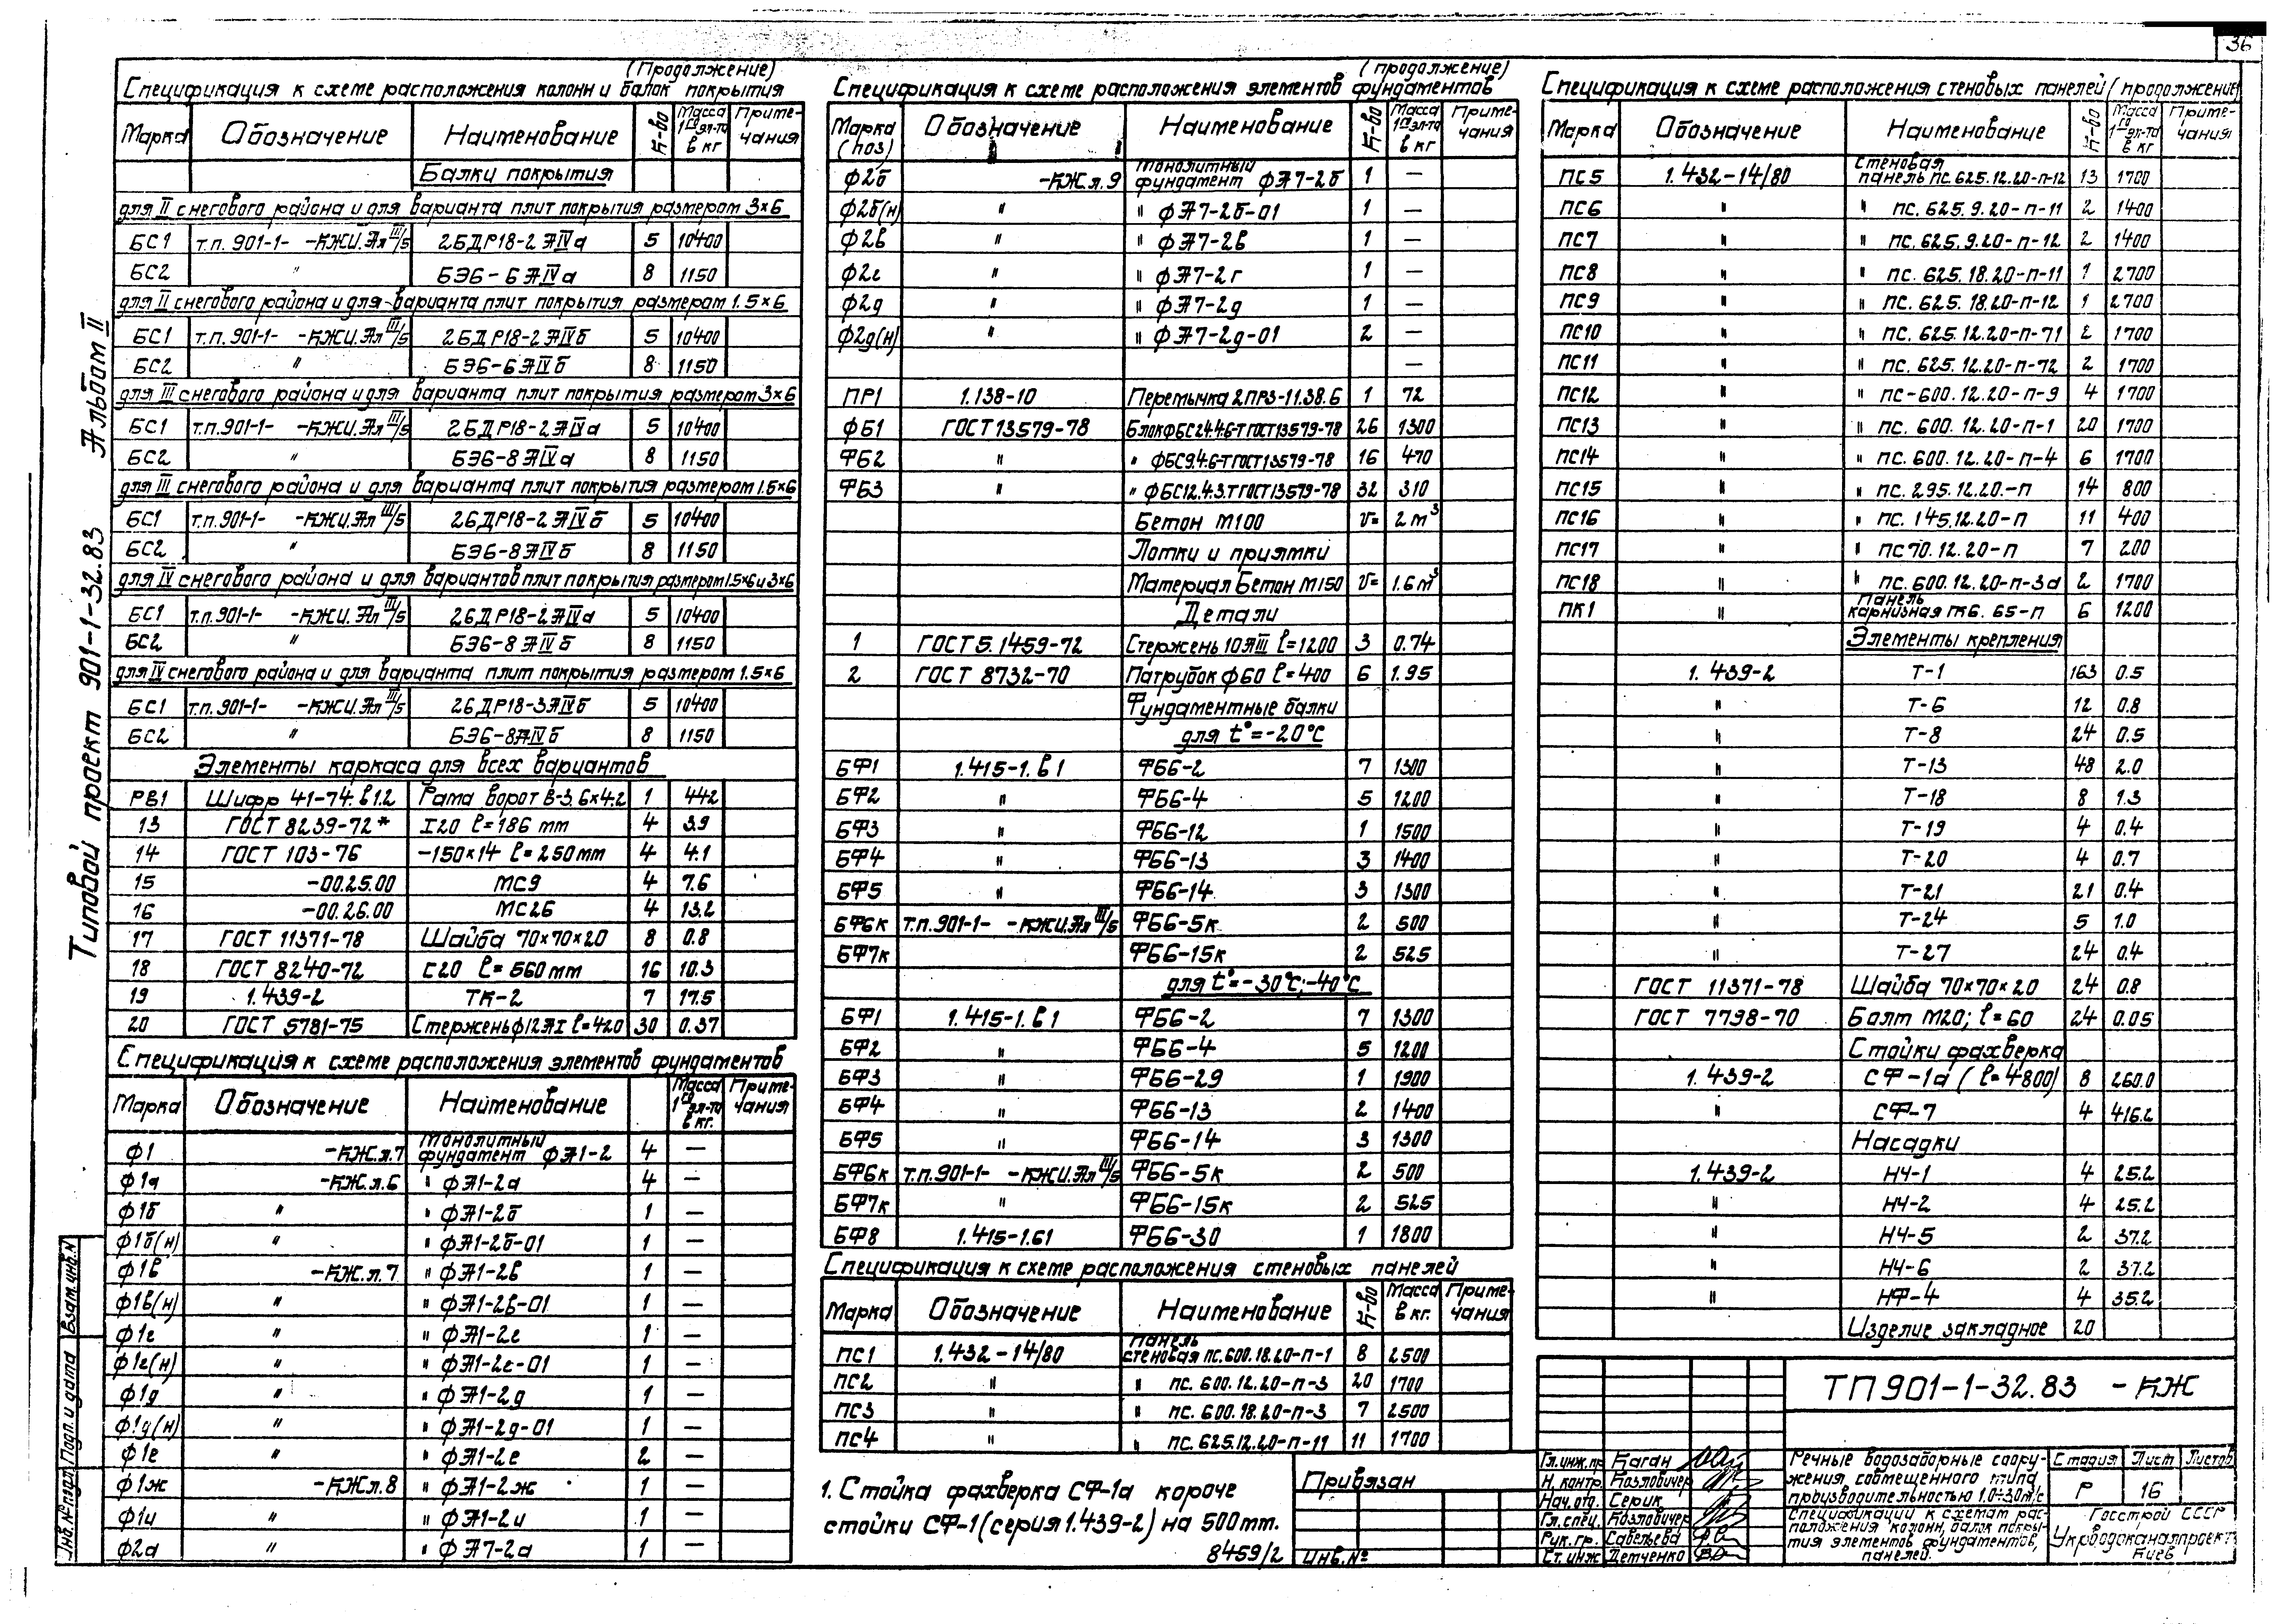 36
Типовой проект 901-1-32.83 Альбом II
(Продолжение)
Спецификация к схеме расположения колонн и балок покрытия
Марка Обозначение Наименование К-во Масса 1го эл-та в кг Приме-чания
Балки покрытия
для II снегового района и для варианта плит покрытия размером 3×6
БС1 т.п. 901-1- -КЖИ.Ал III/5 2БДР18-2АIVа 5 10400
БС2 " БЭ6-6АIVа 8 1150
для II снегового района и для варианта плит покрытия размером 1.5×6
БС1 т.п. 901-1- -КЖИ.Ал III/5 2БДР18-2АIVб 5 10400
БС2 " БЭ6-6АIVб 8 1150
для III снегового района и для варианта плит покрытия размером 3×6
БС1 т.п.901-1- -КЖИ.Ал III/5 2БДР18-2АIVа 5 10400
БС2 " БЭ6-8АIVа 8 1150
для III снегового района и для варианта плит покрытия размером 1.5×6
БС1 т.п.901-1- -КЖИ.Ал III/5 2БДР18-2АIVб 5 10400
БС2 " БЭ6-8АIVб 8 1150
для IV снегового района и для вариантов плит покрытия размером 1.5×6 и 3×6
БС1 т.п.901-1- -КЖИ.Ал III/5 2БДР18-2АIVа 5 10400
БС2 " БЭ6-8АIVб 8 1150
для IV снегового района и для варианта плит покрытия размером 1.5×6
БС1 т.п. 901-1- -КЖИ.Ал III/5 2БДР18-3АIVб 5 10400
БС2 " БЭ6-8АIVб 8 1150
Элементы каркаса для всех вариантов
РВ1 Шифр 41-74. в1.2 Рама ворот В-3.6×4.2 1 442
13 ГОСТ 8239-72* I20 ℓ=186 mm 4 3.9
14 ГОСТ 103-76 -150×14 ℓ=250mm 4 4.1
15 -00.25.00 МС9 4 7.6
16 -00.26.00 МС26 4 13.2
17 ГОСТ 11371-78 Шайба 70×70×20 8 0.8
18 ГОСТ 8240-72 С20 ℓ=560mm 16 10.3
19 1.439-2 ТК-2 7 17.5
20 ГОСТ 5781-75 Стержень ф12АI ℓ=420 30 0.37
Спецификация к схеме расположения элементов фундаментов
Марка Обозначение Наименование Масса 1го эл-та в кг. Приме-чания
Ф1 -КЖ.л.7 Монолитный фундамент ФА1-2 4 —
Ф1а -КЖ.л.6 " ФА1-2а 4 —
Ф1б " " ФА1-2б 1 —
Ф1б(н) " " ФА1-2б-01 1 —
Ф1в -КЖ.л.7 " ФА1-2в 1 —
Ф1в(н) " " ФА1-2в-01 1 —
Ф1г " " ФА1-2г 1 —
Ф1г(н) " " ФА1-2г-01 1 —
Ф1д " " ФА1-2д 1 —
Ф1д(н) " " ФА1-2д-01 1 —
Ф1е " " ФА1-2е 2 —
Ф1ж -КЖ.л.8 " ФА1-2ж 1 —
Ф1и " " ФА1-2и 1 —
Ф2а " " ФА7-2а 1 —
(продолжение)
Спецификация к схеме расположения элементов фундаментов
Марка (поз) Обозначение Наименование К-во Масса 1го эл-та в кг Приме-чания
Ф2б -КЖ.л.9 Монолитный фундамент ФА7-2б 1 —
Ф2б(н) " " ФА7-2б-01 1 —
Ф2в " " ФА7-2в 1 —
Ф2г " " ФА7-2г 1 —
Ф2д " " ФА7-2д 1 —
Ф2д(н) " " ФА7-2д-01 2 —
—
ПР1 1.138-10 Перемычка 2ПР3-11.38.6 1 72
ФБ1 ГОСТ13579-78 Блок ФБС24.4.6-Т ГОСТ13579-78 26 1300
ФБ2 " " ФБС9.4.6-Т ГОСТ13579-78 16 470
ФБ3 " " ФБС12.4.3.Т ГОСТ13579-78 32 310
Бетон М100 v= 2м³
Лотки и приямки
Материал Бетон М150 v= 1.6м³
Детали
1 ГОСТ 5.1459-72 Стержень 10АIII ℓ=1200 3 0.74
2 ГОСТ 8732-70 Патрубок ф60 ℓ=400 6 1.95
Фундаментные балки
для t°=-20°С
БФ1 1.415-1. в1 ФБ6-2 7 1300
БФ2 " ФБ6-4 5 1200
БФ3 " ФБ6-12 1 1500
БФ4 " ФБ6-13 3 1400
БФ5 " ФБ6-14 3 1300
БФ6к т.п.901-1- -КЖИ.Ал III/5 ФБ6-5к 2 500
БФ7к ФБ6-15к 2 525
для t°=-30°С;-40°С
БФ1 1.415-1. в1 ФБ6-2 7 1300
БФ2 " ФБ6-4 5 1200
БФ3 " ФБ6-29 1 1900
БФ4 " ФБ6-13 2 1400
БФ5 " ФБ6-14 3 1300
БФ6к т.п. 901-1- -КЖИ.Ал III/5 ФБ6-5к 2 500
БФ7к " ФБ6-15к 2 525
БФ8 1.415-1.61 ФБ6-30 1 1800
Спецификация к схеме расположения стеновых панелей
Марка Обозначение Наименование К-во Масса в кг. Приме-чания
ПС1 1.432-14/80 Панель стеновая ПС.600.18.20-П-1 8 2500
ПС2 " " ПС. 600.12.20-П-3 20 1700
ПС3 " " ПС. 600.18.20-П-3 7 2500
ПС4 " " ПС. 625.12.20-П-11 11 1700
1. Стойка фахверка СФ-1а короче
стойки СФ-1 (серия 1.439-2) на 500mm.
8459/2
Спецификация к схеме расположения стеновых панелей (продолжение)
Марка Обозначение Наименование К-во Масса 1го эл-та в кг Приме-чания
ПС5 1.432-14/80 Стеновая панель ПС.625.12.20-П-12 13 1700
ПС6 " " ПС. 625.9.20-П-11 2 1400
ПС7 " " ПС. 625.9.20-П-12 2 1400
ПС8 " " ПС. 625.18.20-П-11 1 2700
ПС9 " " ПС. 625.18.20-П-12 1 2700
ПС10 " " ПС. 625.12.20-П-71 2 1700
ПС11 " " ПС. 625.12.20-П-72 2 1700
ПС12 " " ПС-600.12.20-П-9 4 1700
ПС13 " " ПС. 600.12.20-П-1 20 1700
ПС14 " " ПС. 600.12.20-П-4 6 1700
ПС15 " " ПС. 295.12.20.-П 14 800
ПС16 " " ПС. 145.12.20-П 11 400
ПС17 " " ПС70.12.20-П 7 200
ПС18 " " ПС.600.12.20-П-3а 2 1700
ПК1 " Панель карнизная ПК6. 65-П 6 1200
Элементы крепления
1. 439-2 Т-1 163 0.5
" Т-6 12 0.8
" Т-8 24 0.5
" Т-13 48 2.0
" Т-18 8 1.3
" Т-19 4 0.4
" Т-20 4 0.7
" Т-21 21 0.4
" Т-24 5 1.0
" Т-27 24 0.4
ГОСТ 11371-78 Шайба 70×70×20 24 0.8
ГОСТ 7798-70 Болт М20; ℓ=60 24 0.05
Стойки фахверка
1.439-2 СФ-1а (ℓ=4800) 8 260.0
" СФ-7 4 416.2
Насадки
1.439-2 НЧ-1 4 25.2
" НЧ-2 4 25.2
" НЧ-5 2 37.2
" НЧ-6 2 37.2
" НФ-4 4 35.2
Изделие закладное 20
ТП901-1-32.83 -КЖ
Привязан
Инв.№
Гл.инж.пр Каган
Н. контр. Козловичер
Нач.отд. Серик
Гл.спец. Козловичер
Рук.гр. Савельева
Ст.инж Детченко
Речные водозаборные соору-
жения совмещенного типа
производительностью 1.0÷3.0м³/с
Спецификации к схемам рас-
положения колонн, балок покры-
тия элементов фундаментов,
панелей.
Стадия Лист Листов
Р 16
Госстрой СССР
Укрводоканалпроект
Киев
Взам.инв.№
Подп. и дата
Инв.№ подл.